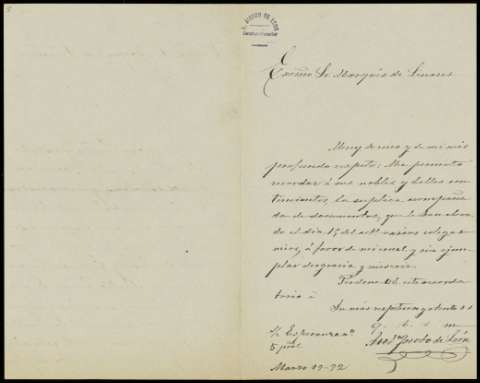 Excmo Sr Marqués de Linares
Muy Sr mio y de mi más
profundo respeto: Me permito
recordar á sus nobles y bellos sen-
timientos, la súplica acompaña
da de documentos, que le han eleva
do el dia 15 del actl varios colegas
mios, á favor de mi cruel y sin ejem
plar desgracia y miseria.
Perdone Vd. este recorda
torio á
su más respetuoso y atento s. s.
q. b. s. m.
de León
S/c Esperanza
5 pral
Marzo 19-92